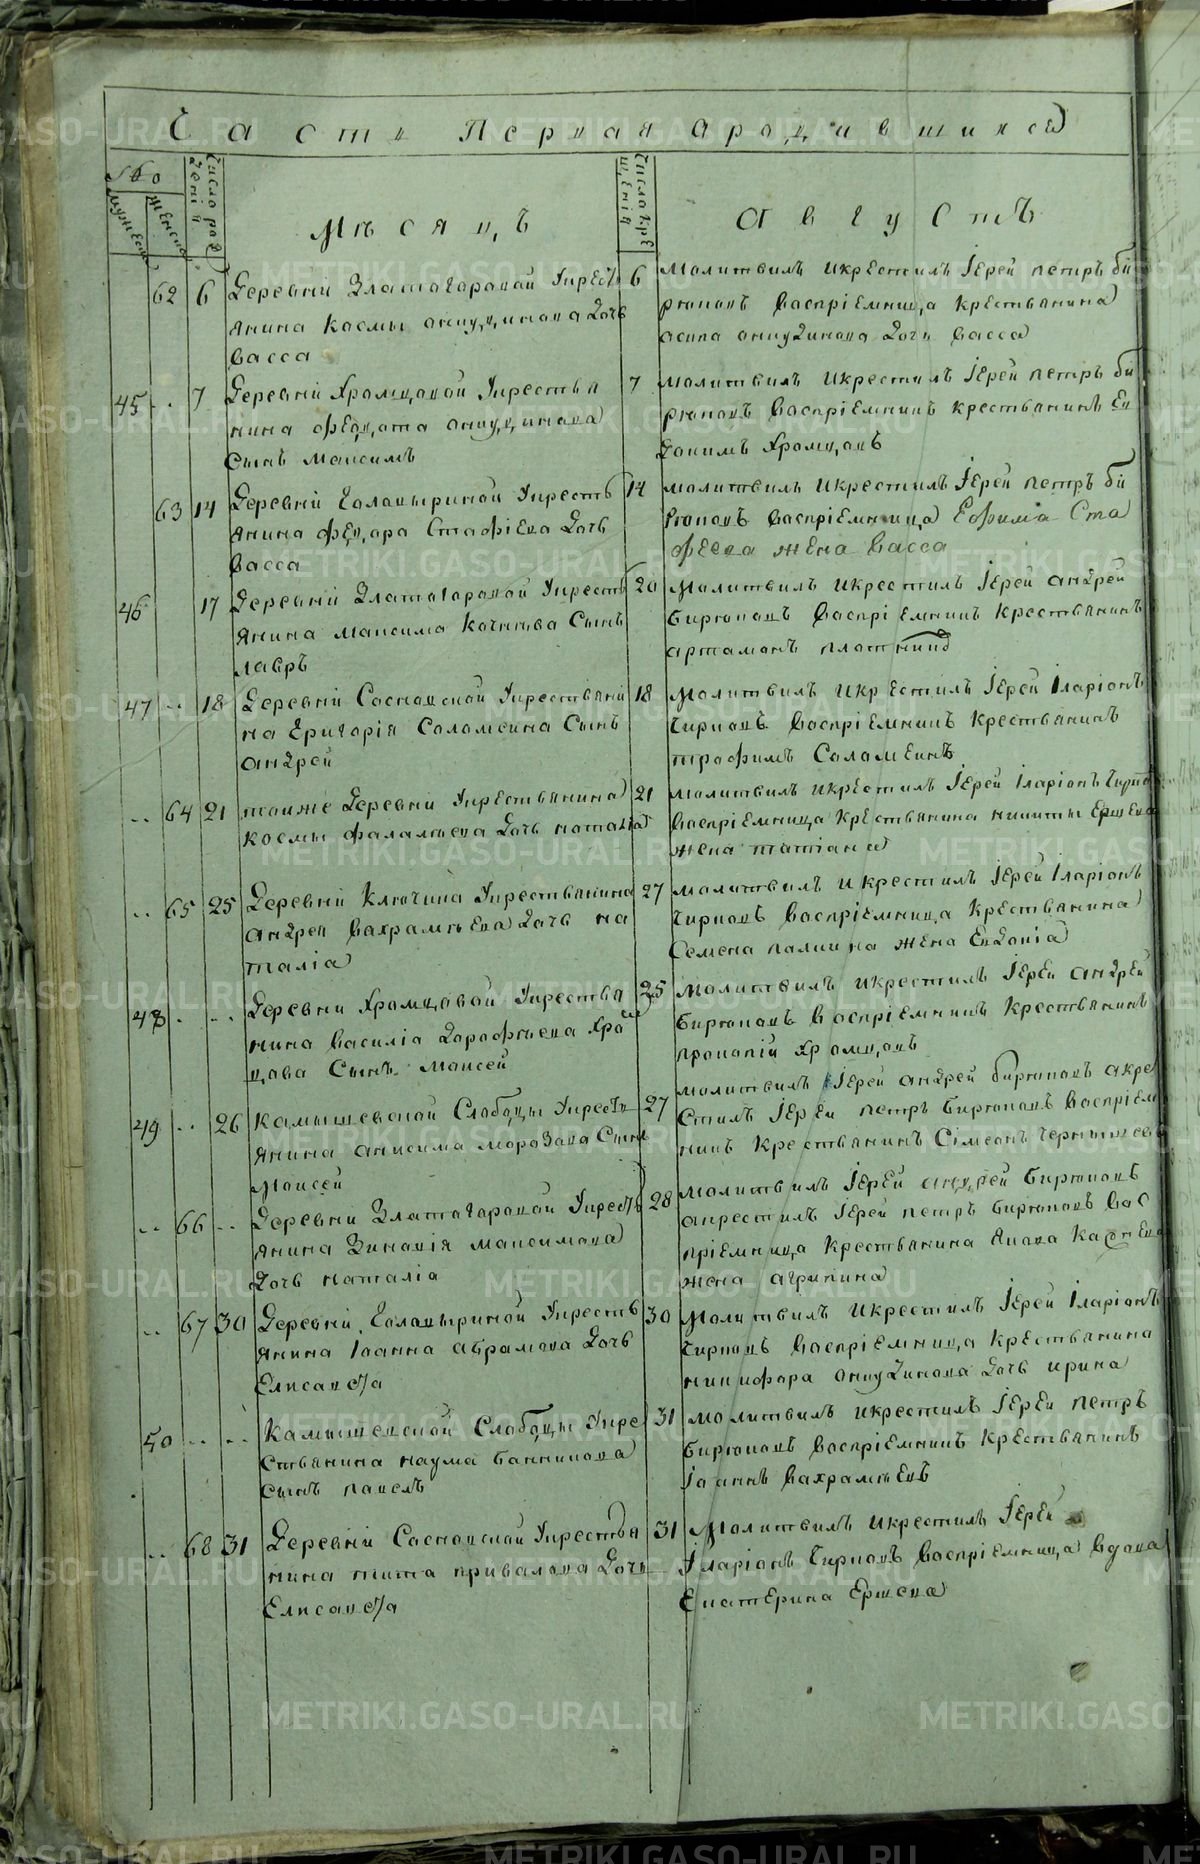 Часть Первая ародившихся
Число рож
дений
Число кре
щений
мужеска
женска
Месяцъ
Августъ
62 6 Деревни Златогоровой Укресть
янина Космы Анкудинова Дочь
Васса
6 Молитвилъ Икрестилъ Іерей петръ би
рюковъ Воспріемница крестьянина
осипа анкудинова Дочь Васса
45 .. 7 Деревни Храмцовой Укрестья
нина федота анкудинова
Сынъ Максимъ
7 молитвилъ Икрестилъ Іерей петръ би
рюковъ Воспріемникъ крестьянинъ Ев
докимъ Храмцовъ
63 14 Деревни Голадыриной Укресть
янина федора Стафіева Дочь
Васса
14 молитвилъ Икрестилъ Іерей петръ би
рюковъ Воспріемница Ефима Ста
феева жена Васса
46 17 Деревни Златогоровой Укресть
янина максима Кочнева Сынъ
лавръ
20 Молитвилъ Икрестилъ Іерей андрей
бирюковъ Воспріемникъ крестьянинъ
артамонъ плотник
47 .. 18 Деревни Сосновской Укрестьяни
на Григорія Соломеина Сынъ
андрей
18 Молитвилъ Икрестилъ Іерей Іларіонъ
Чирковъ Воспріемникъ Крестьянинъ
трофимъ Саламеинъ
.. 64 21 тойже Деревни Укрестьянина
космы фаламеева Дочь наталіа
21 Молитвилъ Икрестилъ Іерей Іларіонъ Чирко
Воспріемница Крестьянина никиты Ершева
жена татіана
.. 65 25 Деревни Ключина Укрестьянина
Андрея Вахрамеева Дочь на
таліа
27 молитвилъ Икрестилъ Іерей Іларіонъ
Чирковъ Воспріемница Крестьянина
Семена палкина жена Евдокіа
48 . .. Деревни Храмцовой Укрестья
нина Василіа Дорофеева Хра
цова Сынъ Моисей
25 Молитвилъ Икрестилъ Іерей андрей
бирюковъ Воспріемникъ Крестьянинъ
прокопій Храмцовъ
49 .. 26 Камышевской Слободы Укресть
янина анисима морозова Сынъ
Моисей
27 молитвилъ Іерей андрей бирюковъ акре
Стилъ Іерей петръ бирюковъ Воспріем
никъ Крестьянинъ Сімеонъ Чернышевъ
.. 66 .. Деревни Златогоровой Укресть
янина Зиновія максимова
Дочь наталіа
28 молитвилъ Іерей андрей бирюковъ
акрестилъ Іерей петръ бирюковъ Вос
пріемница Крестьянина Якова
жена агрипина
.. 67 30 Деревни Голадыриной Укресть
янина Іоанна абрамова Дочь
Елисавета
30 Молитвилъ Икрестилъ Іерей Іларіонъ
Чирковъ Воспріемница Крестьянина
никифора анкудинова Дочь ирина
50 .. .. Камышевской Слободы Укре
стьянина наума банникова
сынъ павелъ
31 молитвилъ Икрестилъ Іерей петръ
бирюковъ Воспріемникъ Крестьянинъ
Іоаннъ Вахрамеевъ
.. 68 31 Деревни Сосновской Укрестья
нина тита привалова Дочь
Елисавета
31 Молитвилъ Икрестилъ Іерей
Іларіонъ Чирковъ Воспріемница Вдова
Екатерина Ершева